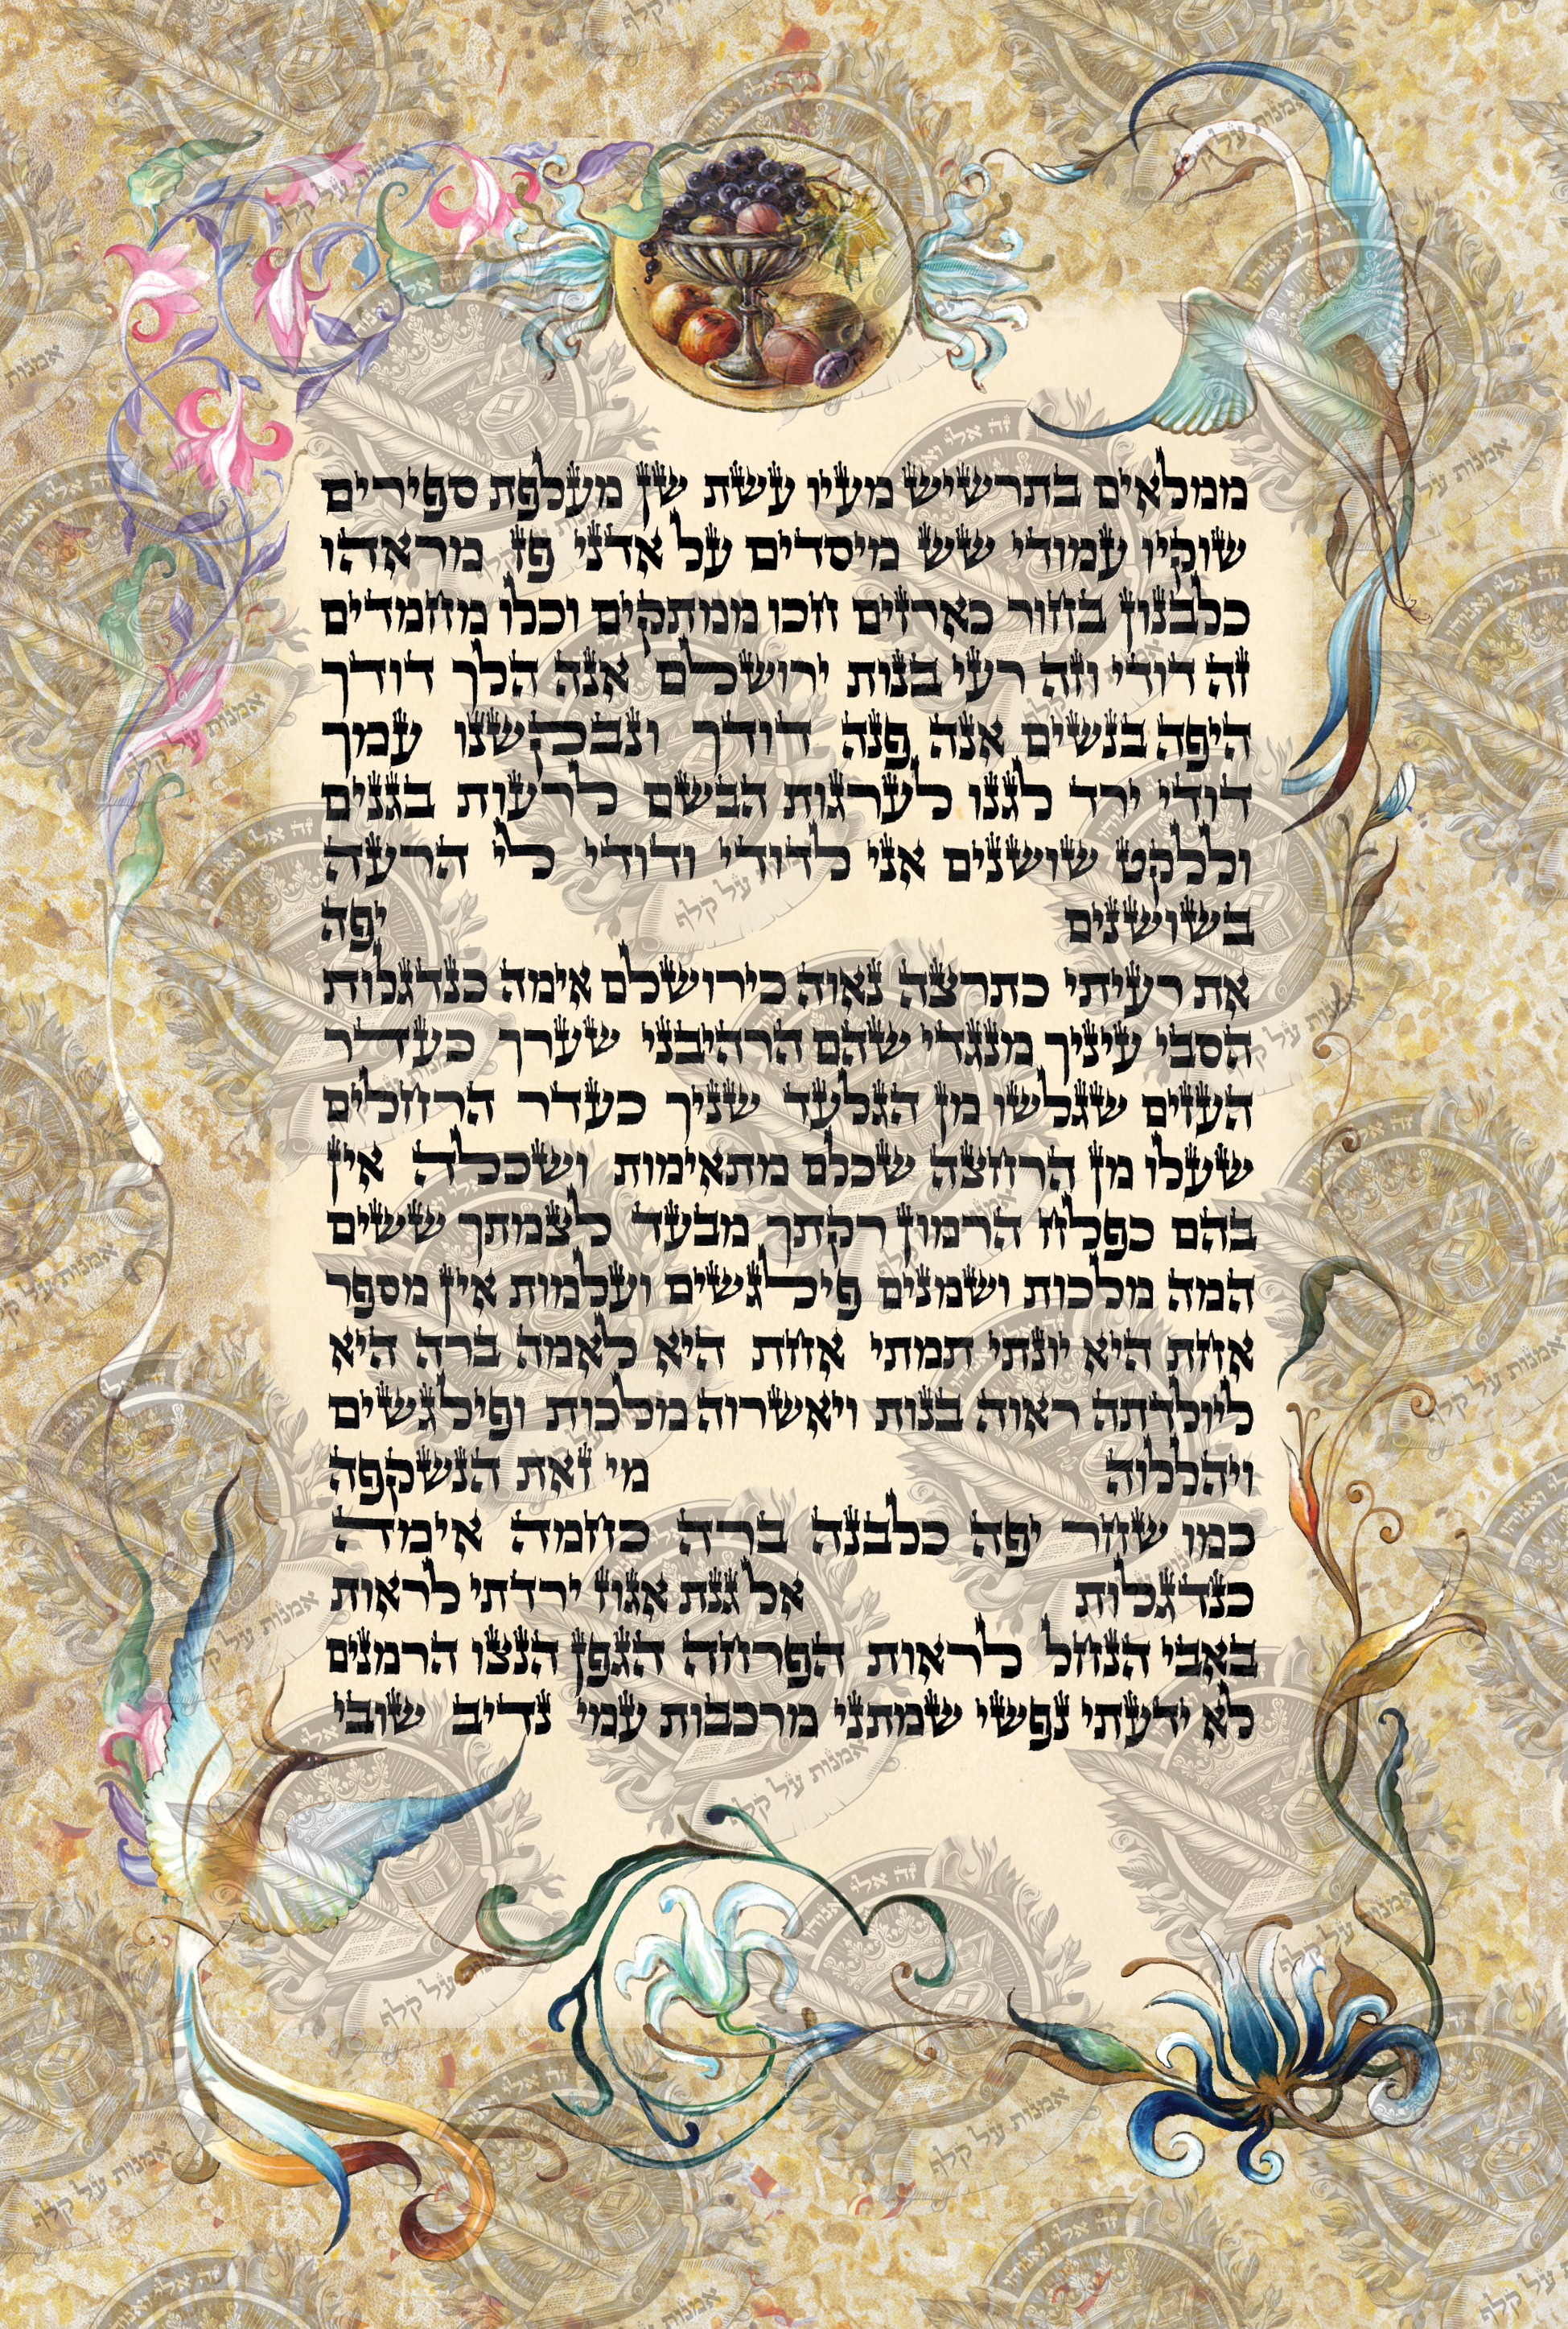 ממלאים בתרשיש מעיו עשת שן מעלפת ספירים
שוקיו עמודי שש מיסדים על אדני פז מראהו
כלבנון בחור כארזים חכו ממתקים וכלו מחמדים
זה דודי וזה רעי בנות ירושלם אנה הלך דודך
היפה בנשים אנה פנה דודך ונבקשנו עמך
דודי ירד לגנו לערגות הבשם לרעות בגנים
וללקט שושנים אני לדודי ודודי לי הרעה
בשושנים יפה
את רעיתי כתרצה נאוה כירושלם אימה כנדגלות
הסבי עיניך מנגדי שהם הרהיבני שערך כעדר
העזים שגלשו מן הגלעד שניך כעדר הרחלים
שעלו מן הרחצה שכלם מתאימות ושכלה אין
בהם כפלח הרמון רקתך מבעד לצמתך ששים
המה מלכות ושמנים פילגשים ועלמות אין מספר
אחת היא יונתי תמתי אחת היא לאמה ברה היא
ליולדתה ראוה בנות ויאשרוה מלכות ופילגשים
ויהללוה מי זאת הנשקפה
כמו שחר יפה כלבנה ברה כחמה אימה
כנדגלות אל גנת אגוז ירדתי לראות
באבי הנחל לראות הפרחה הגפן הנצו הרמנים
לא ידעתי נפשי שמתני מרכבות עמי נדיב שובי
זה אלי ואנוהו
אמנות על קלף